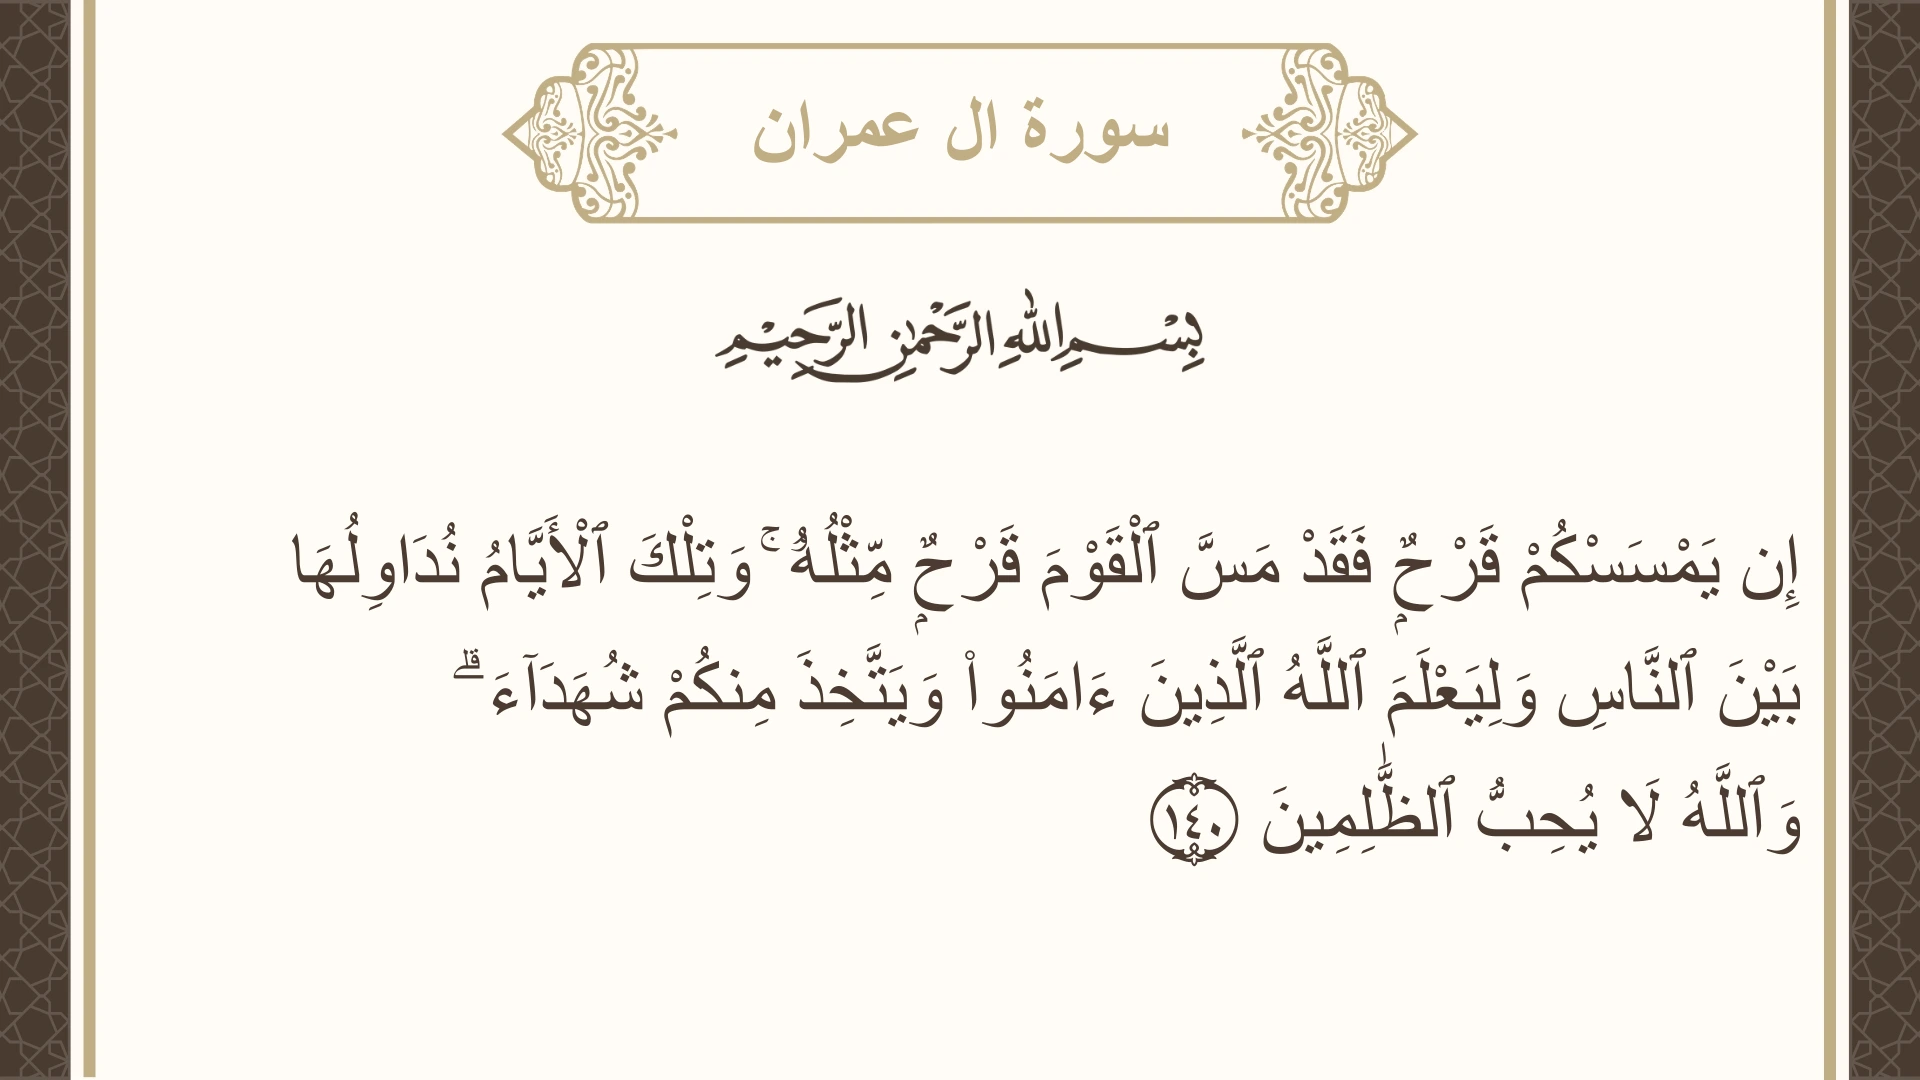 سورة ال عمران
بِسْمِ اللهِ الرَّحْمٰنِ الرَّحِيْمِ
إِن يَمْسَسْكُمْ قَرْحٌۭ فَقَدْ مَسَّ ٱلْقَوْمَ قَرْحٌۭ مِّثْلُهُۥ ۚ وَتِلْكَ ٱلْأَيَّامُ نُدَاوِلُهَا
بَيْنَ ٱلنَّاسِ وَلِيَعْلَمَ ٱللَّهُ ٱلَّذِينَ ءَامَنُوا۟ وَيَتَّخِذَ مِنكُمْ شُهَدَآءَ ۗ
وَٱللَّهُ لَا يُحِبُّ ٱلظَّٰلِمِينَ ١٤٠